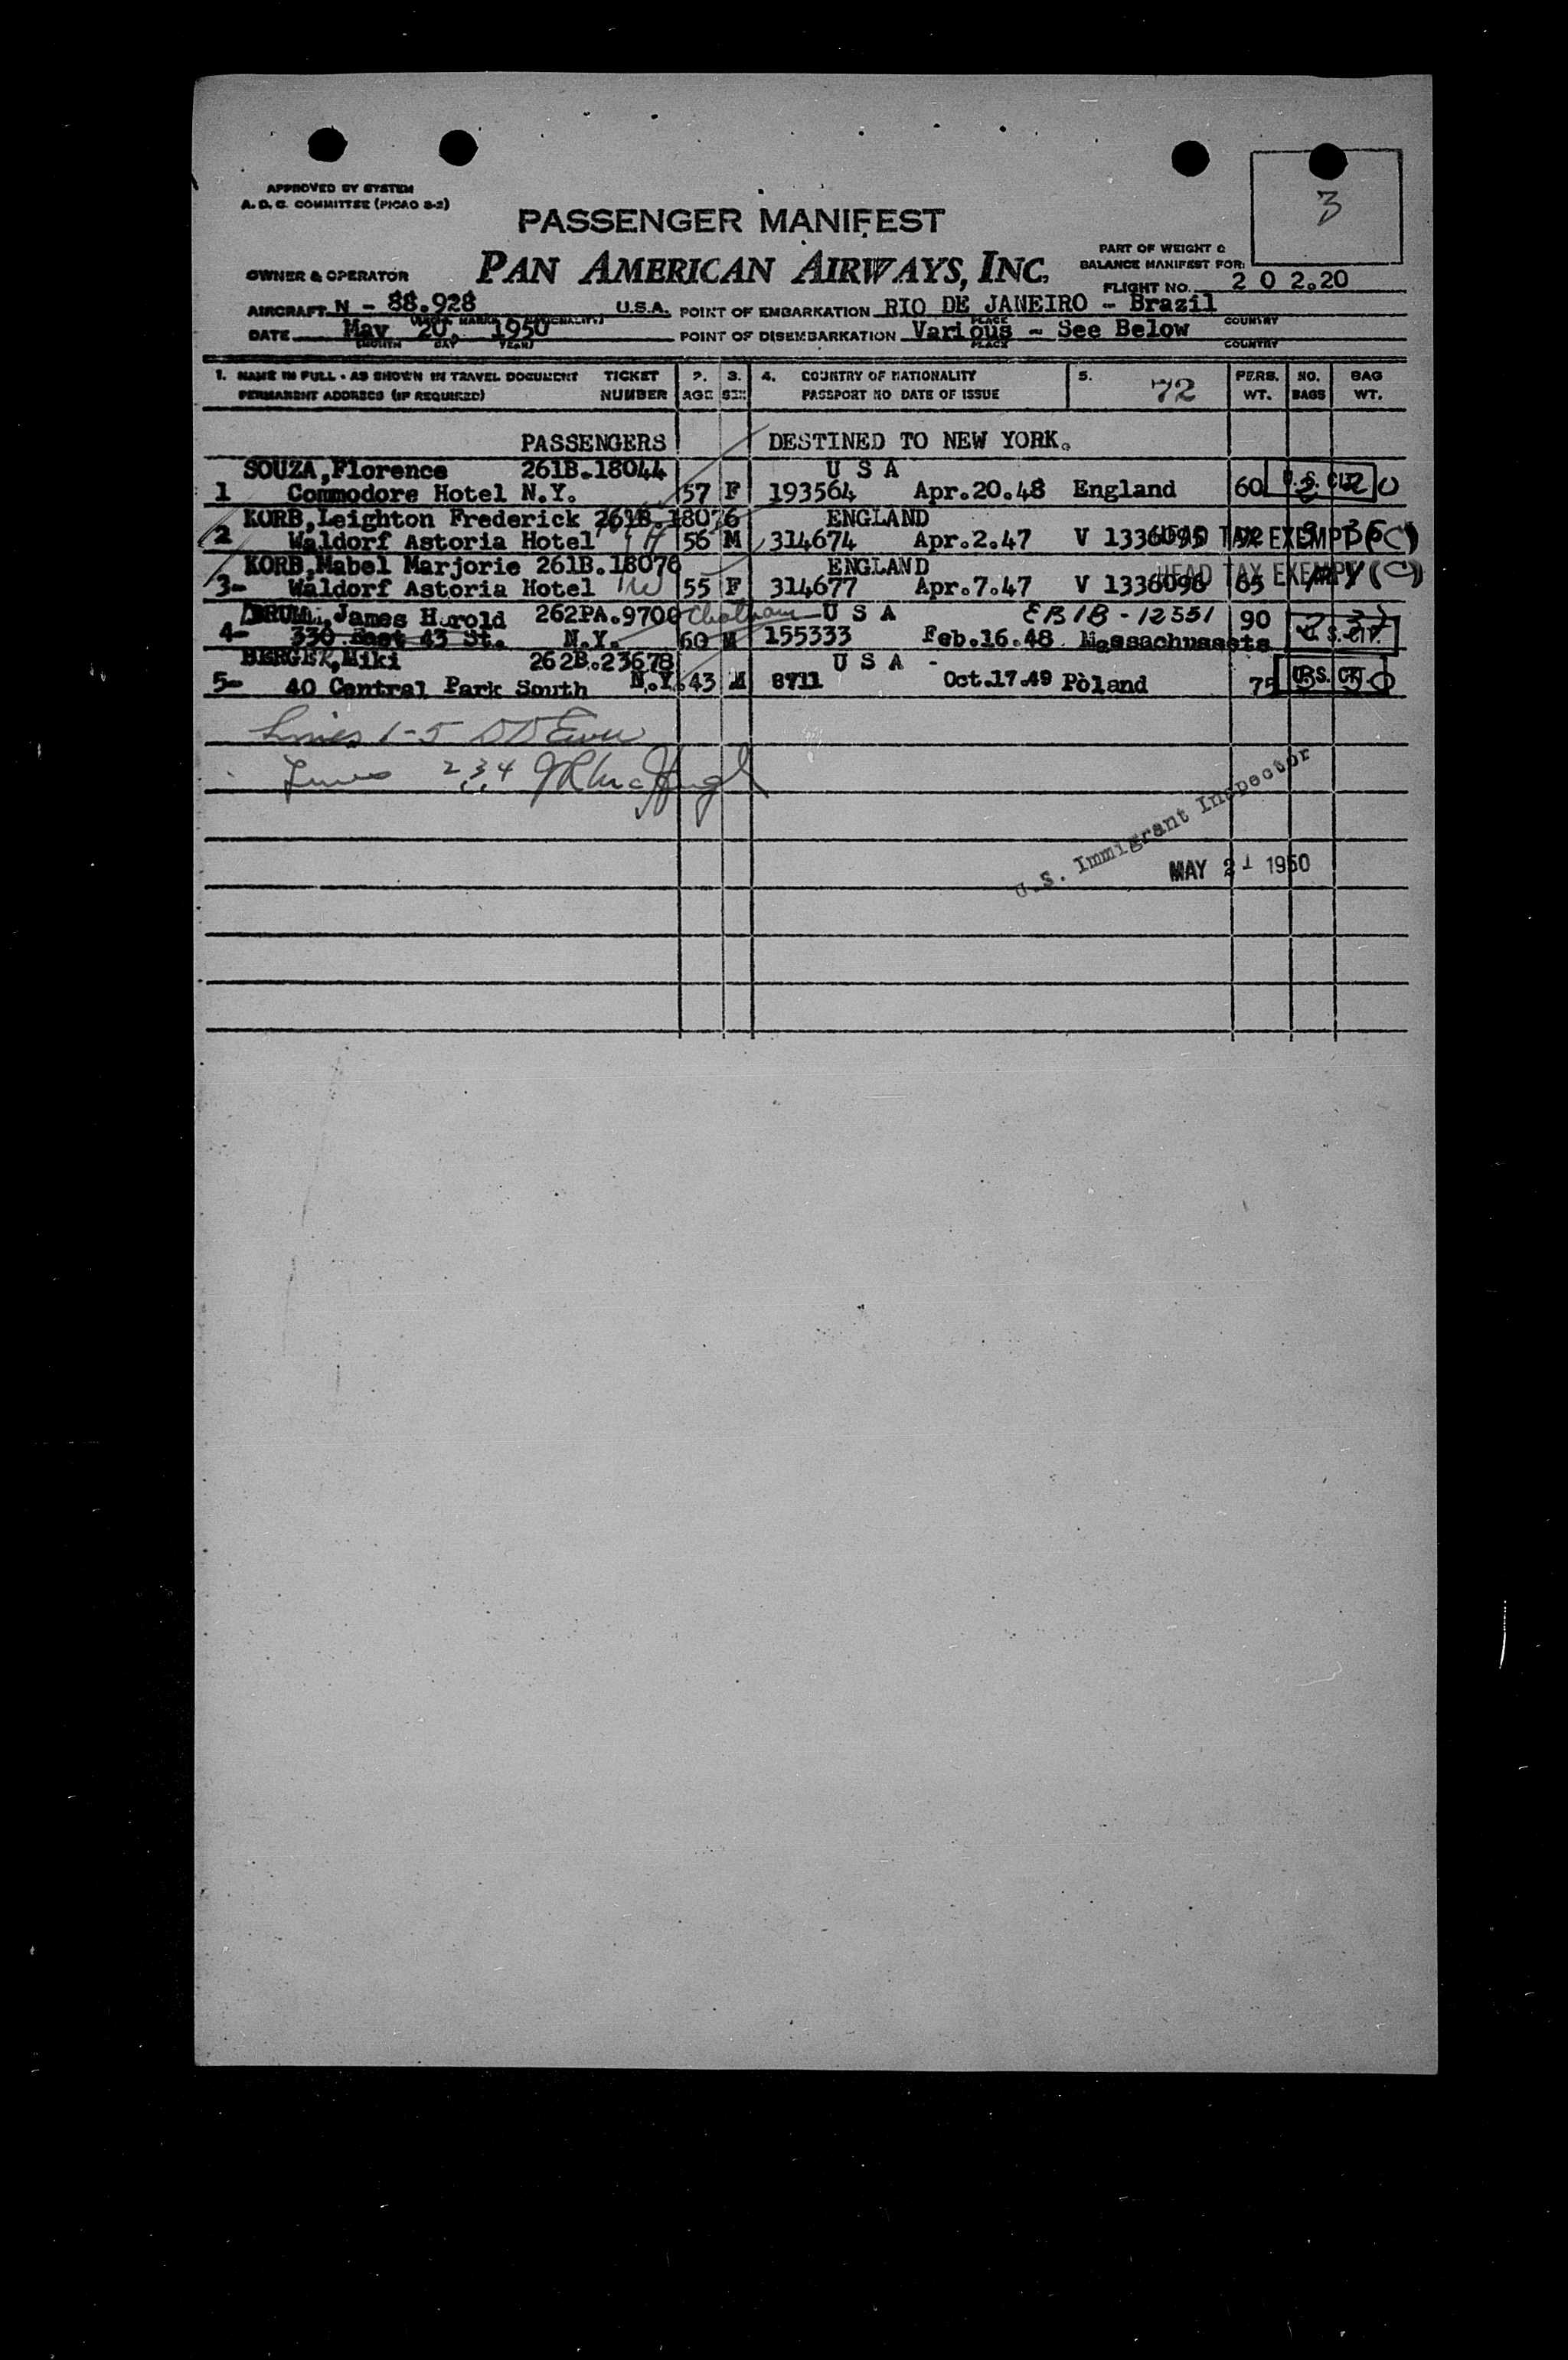 APPROVED BY SYSTEM
A. D. C. COMMITTEE (PICAO S-2)
3
PASSENGER MANIFEST
PAN AMERICAN AIRWAYS, INC.
PART OF WEIGHT &
BALANCE MANIFEST FOR:
OWNER & OPERATOR
FLIGHT NO. 2 0 2.20
AIRCRAFT N - 88.928 U.S.A. POINT OF EMBARKATION RIO DE JANEIRO - Brazil
PLACE COUNTRY
DATE May 20, 1950 POINT OF DISEMBARKATION Various - See Below
(MONTH DAY YEAR) PLACE COUNTRY
1. NAME IN FULL - AS SHOWN IN TRAVEL DOCUMENT TICKET 2. 3. 4. COUNTRY OF NATIONALITY 5. 72 PERS. NO. BAG
PERMANENT ADDRESS (IF REQUIRED) NUMBER AGE SEX PASSPORT NO DATE OF ISSUE WT. BAGS WT.
PASSENGERS DESTINED TO NEW YORK.
SOUZA, Florence 261B.18044 U S A
1 Commodore Hotel N.Y. 57 F 193564 Apr.20.48 England 60 U.S. CIT
KORB, Leighton Frederick 261B.18076 ENGLAND
2 Waldorf Astoria Hotel 56 M 314674 Apr.2.47 V 1336095 HEAD TAX EXEMPT (C)
KORB, Mabel Marjorie 261B.18076 ENGLAND
3- Waldorf Astoria Hotel 55 F 314677 Apr.7.47 V 1336096 65 HEAD TAX EXEMPT (C)
James Harold 262PA.9706 Chatham U S A EB1B-12551 90
4- 330 East 43 St. N.Y. 60 M 155333 Feb.16.48 Massachussets U.S. CIT.
BERGER, Miki 262B.23678 U S A -
5- 40 Central Park South N.Y. 43 M 8711 Oct.17.49 Poland 75 U.S. CIT
Lines 1-5
Lines 2,3,4
U.S. Immigrant Inspector
MAY 21 1950